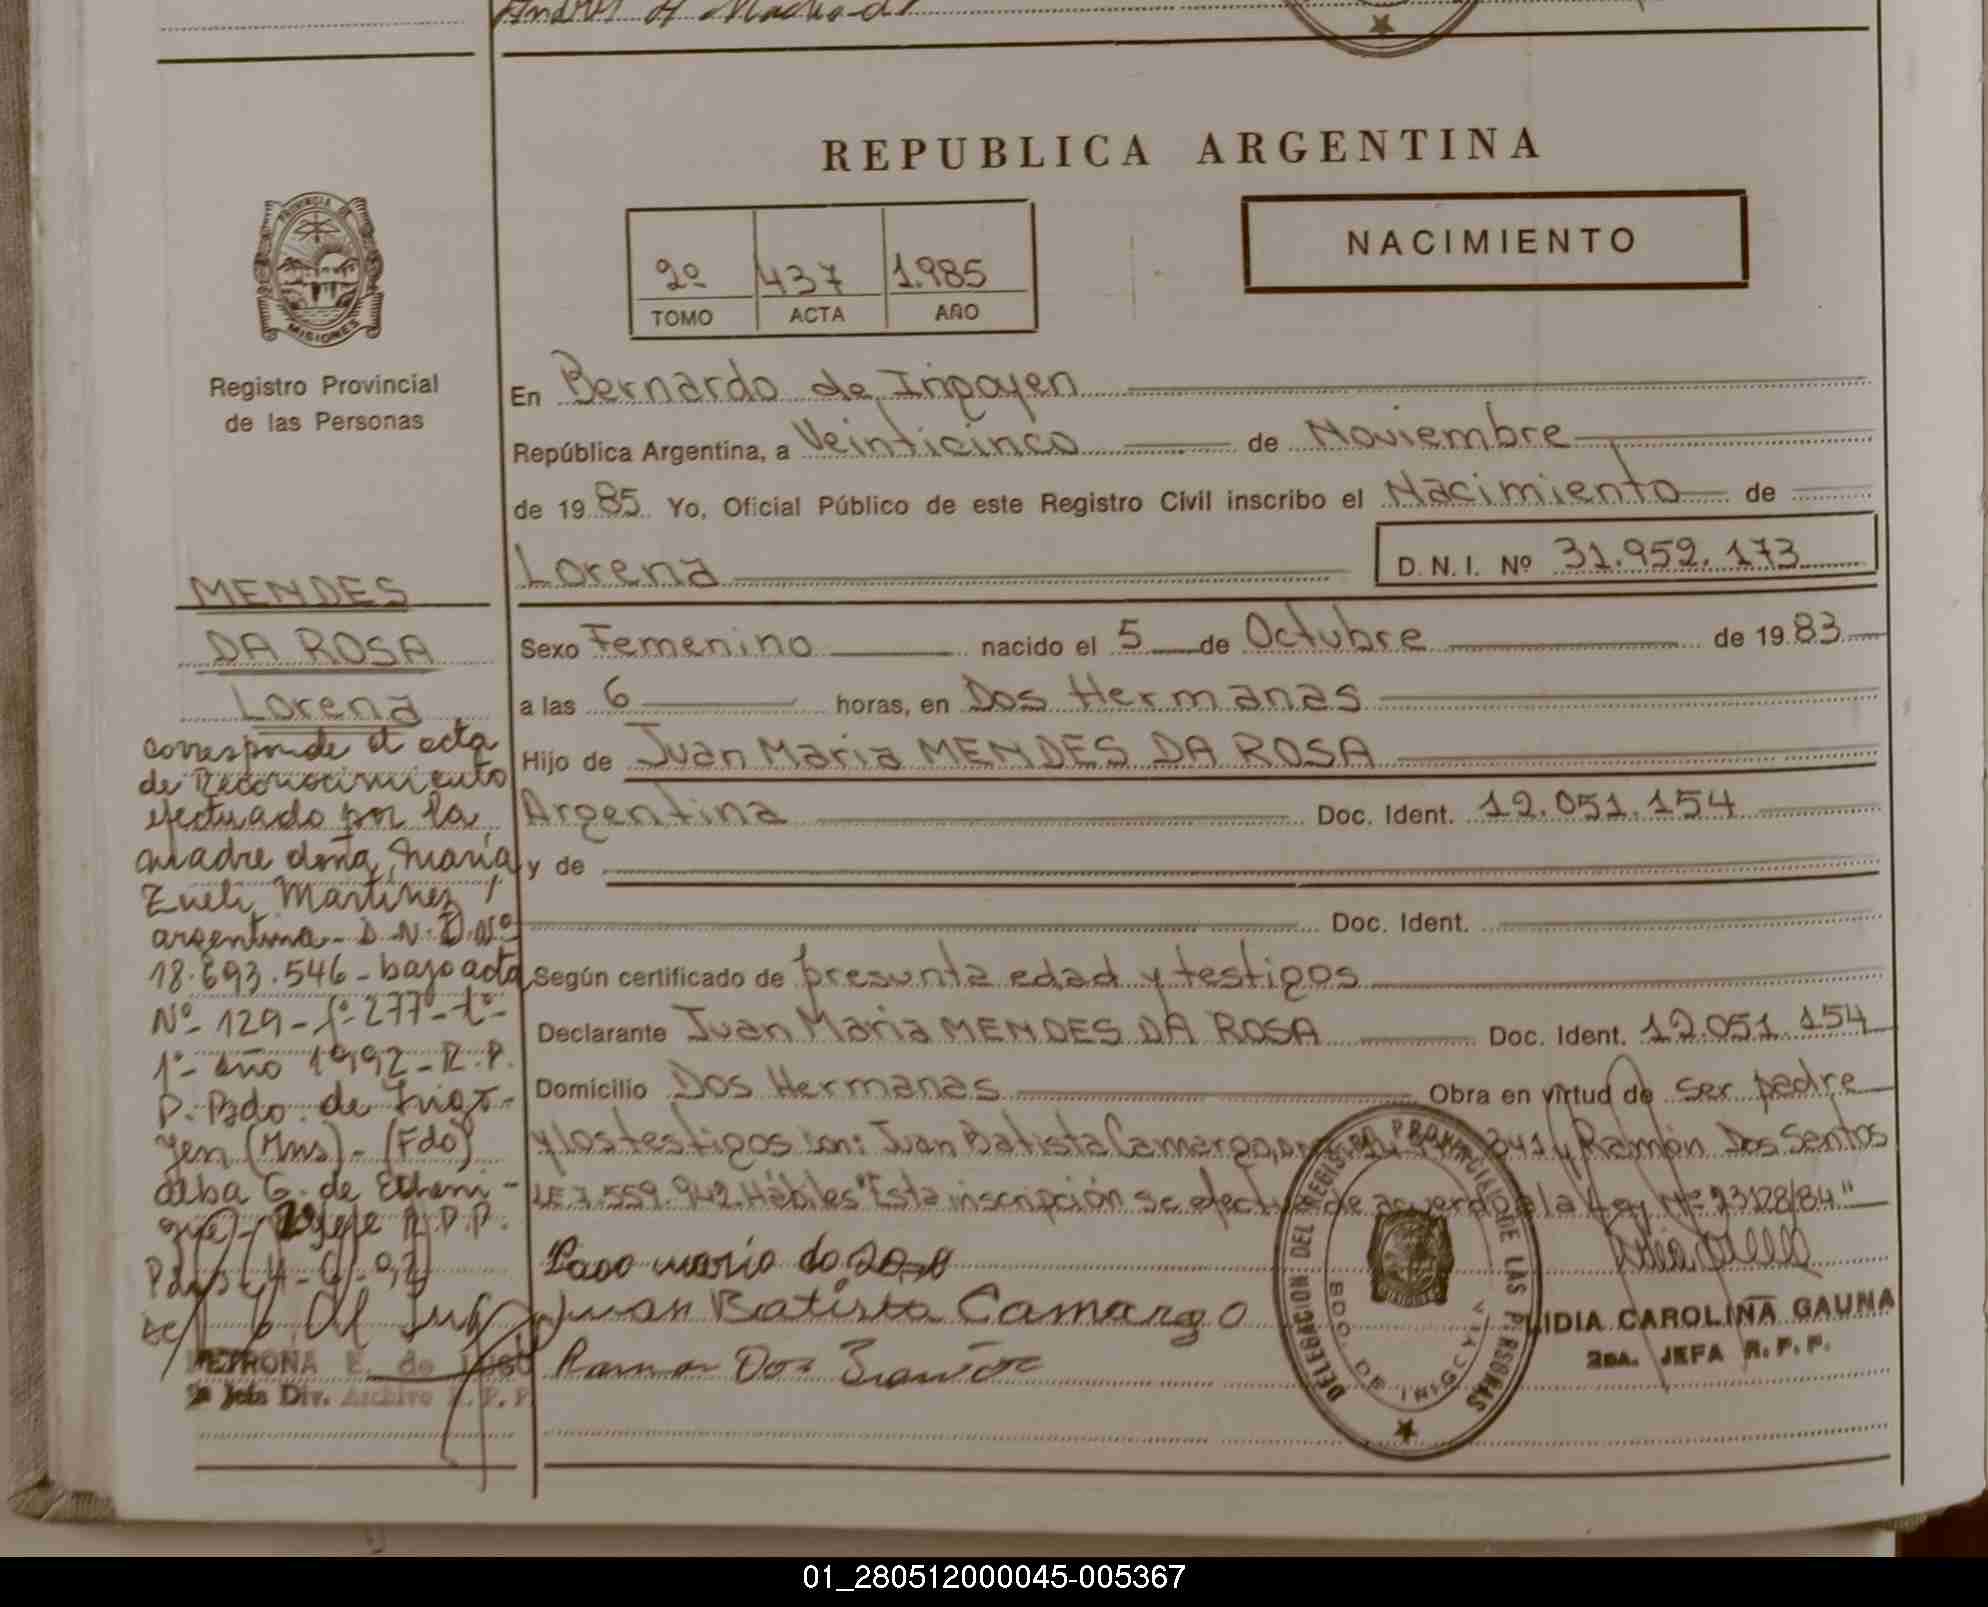 REPUBLICA ARGENTINA
NACIMIENTO
2º 437 1.985
TOMO ACTA AÑO
PROVINCIA DE
MISIONES
Registro Provincial
de las Personas
MENDES
DA ROSA
Lorena
corresponde al acta
de Reconocimiento
efectuado por la
madre doña, María
Zueli Martinez
argentina - D.N.I. Nº
18.693.546 - bajo acta
Nº 129 - fº 277º - tº
1º - año 1992 - R.P.
P. Bdo. de Irigo-
yen (Mns) - (Fdo)
Alba G. de
Jefe R.P.P.
PETRONA E. de
2ª Jefa Div. Archivo R. P. P.
En Bernardo de Irigoyen
República Argentina, a Veinticinco de Noviembre
de 1985 Yo, Oficial Público de este Registro Civil inscribo el Nacimiento de
Lorena D. N. I. Nº 31.952.173
Sexo Femenino nacido el 5 de Octubre de 1983
a las 6 horas, en Dos Hermanas
Hijo de Juan Maria MENDES DA ROSA
Argentina Doc. Ident. 12.051.154
y de
Doc. Ident.
Según certificado de presunta edad y testigos
Declarante Juan Maria MENDES DA ROSA Doc. Ident. 12.051.154
Domicilio Dos Hermanas Obra en virtud de ser padre
y los testigos son: Juan Batista Camargo, 341 y Ramón Dos Santos
LE 7.559.942. Hábiles "Esta inscripción se efectúa de acuerdo a la Ley Nº 23128/84"
Juan Batista Camargo
Ramon Dos
DELEGACION DEL REGISTRO PROVINCIAL DE LAS PERSONAS
BDO. DE IRIGOYEN
LIDIA CAROLINA GAUNA
2DA. JEFA R. P. P.
01_280512000045-005367